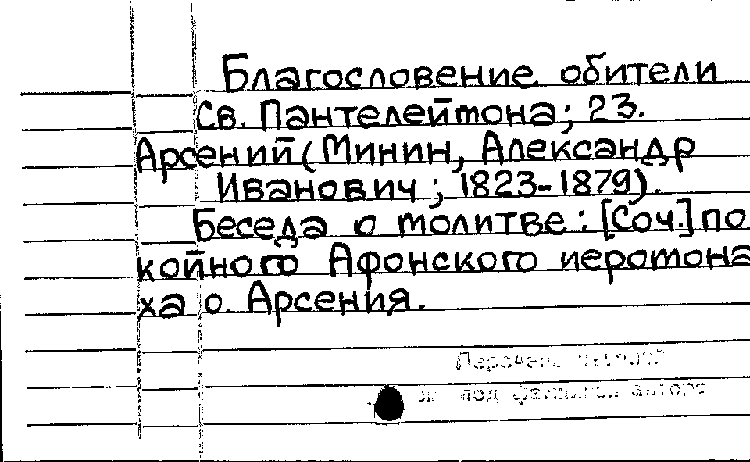 Благословение обители
Св. Пантелеймона; 23.
Арсений (Минин, Александр
Иванович; 1823-1879).
Беседа о молитве: [Соч.] по
койного Афонского иеромона
ха о. Арсения.
под фамилией автора